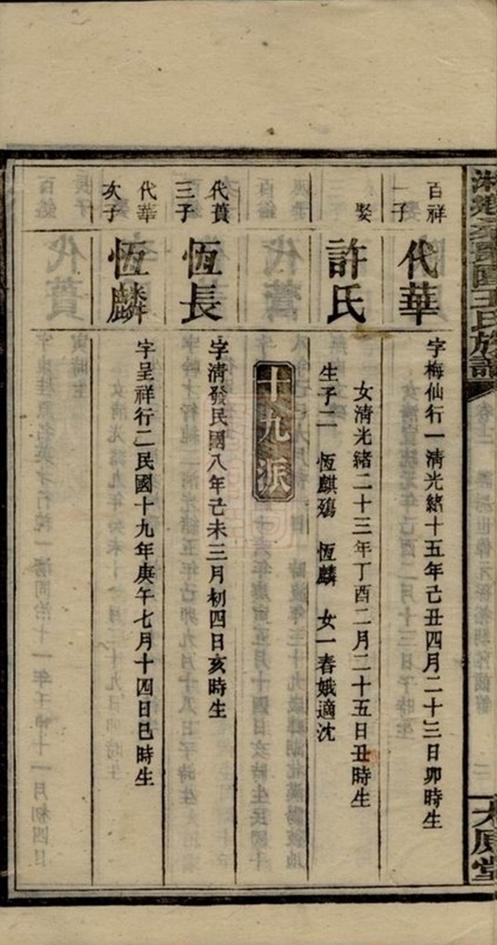 百祥
一子
代華
字梅仙行一清光緒十五年己丑四月二十三日卯時生
娶
許氏
女清光緒二十三年丁酉二月二十五日丑時生
生子二 恆麒殤 恆麟 女一春娥適沈
十九派
代蕢
三子
恆長
字清發民國八年己未三月初四日亥時生
代華
次子
恆麟
字呈祥行二民國十九年庚午七月十四日巳時生